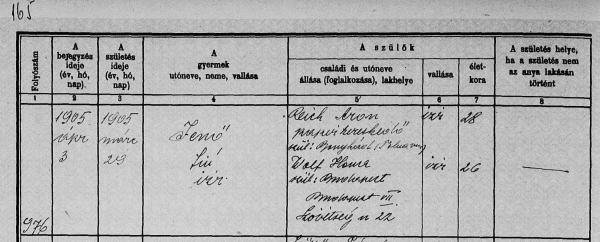 165
Folyószám
A bejegyzés ideje (év, hó, nap)
A születés ideje (év, hó, nap)
A gyermek utóneve, neme, vallása
A szülők
családi és utóneve állása (foglalkozása), lakhelye
vallása
életkora
A születés helye, ha a születés nem az anya lakásán történt
1 2 3 4 5 6 7 8
1905 1905 Reich Aron izr 28
ápr márc Jenő papírkereskedő
3 29 fiú szül:
izr. Wolf izr 26
szül: Budapest
Budapest VII.
Lövölde 22
976